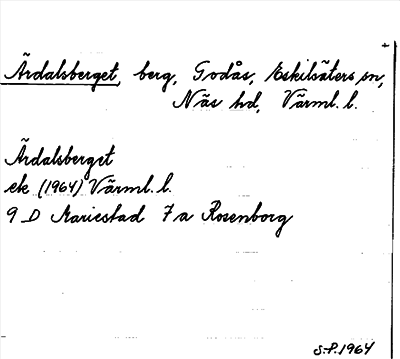 +
Ärdalsberget, berg, Godås, Eskilsäters sn,
Näs hd, Värml. l.
Ärdalsberget
ek (1964) Värml. l.
9 D Mariestad 7a Rosenborg
S.P. 1964